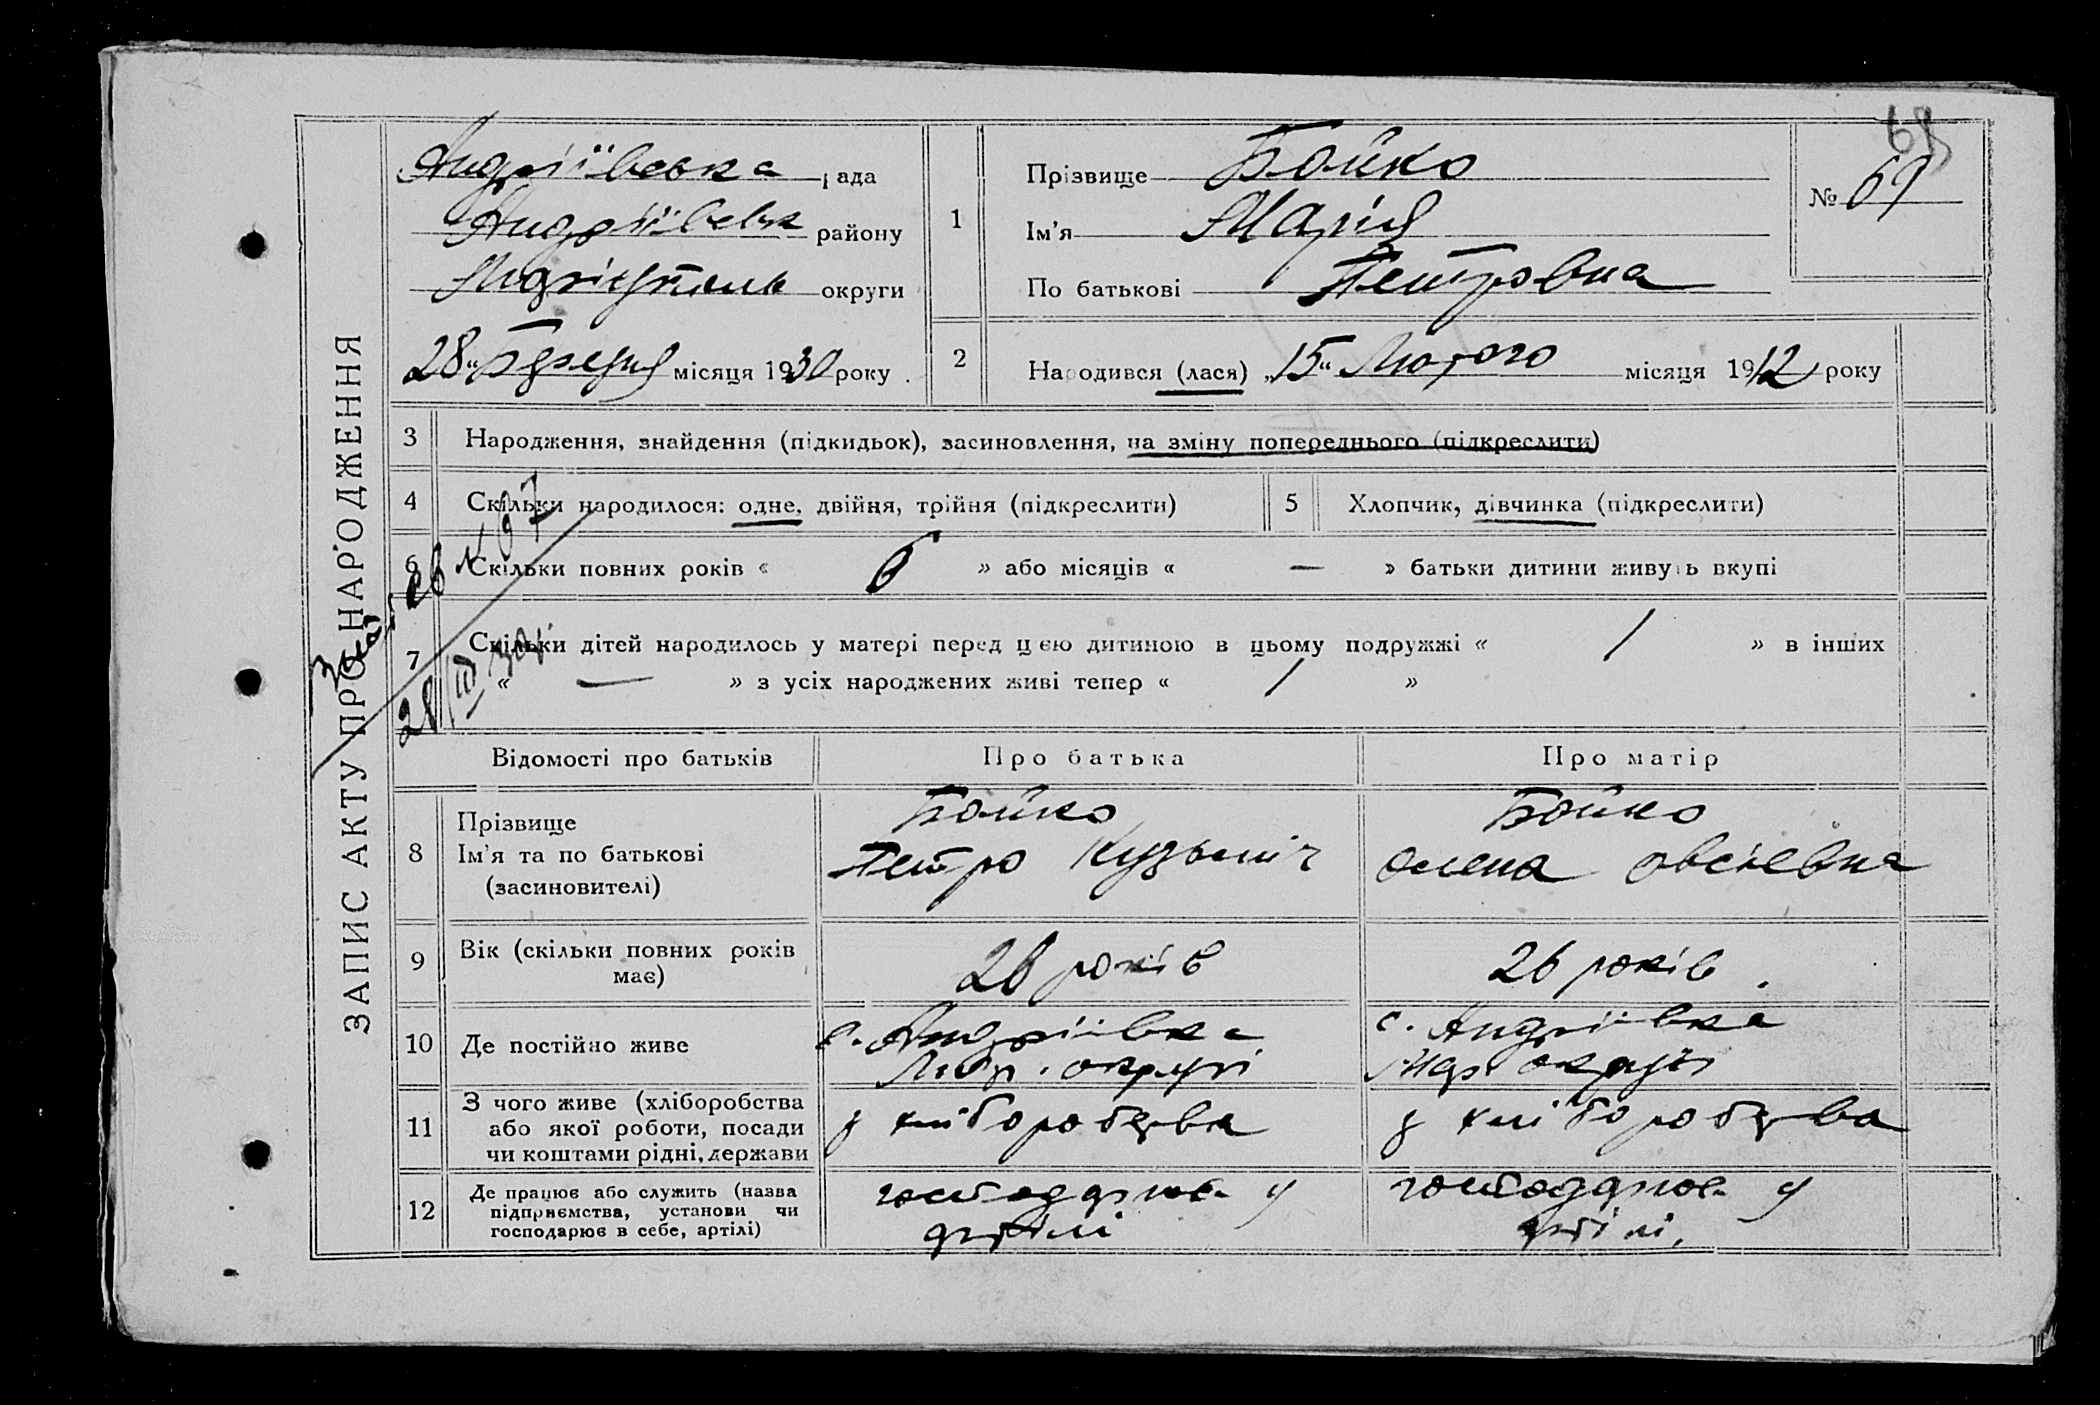 68
Андріївська рада
Андріївськ району
Маріюпіль округи
28 "Березня місяця 1930 року
ЗАПИС АКТУ ПРО НАРОДЖЕННЯ
1
Прізвище Бойко
Ім'я Марія
По батькові Петровна
№ 69
2
Народився (лася) „15" Лютого місяця 1912 року
3 Народження, знайдення (підкидьок), засиновлення, на зміну попереднього (підкреслити)
4 Скільки народилося: одне, двійня, трійня (підкреслити)
5 Хлопчик, дівчинка (підкреслити)
6 Скільки повних років « 6 » або місяців « — » батьки дитини живуть вкупі
7 Скільки дітей народилось у матері перед цією дитиною в цьому подружжі « 1 » в інших
« — » з усіх народжених живі тепер « 1 »
28/III 30р.
Відомості про батьків Про батька Про матір
8
Прізвище
Ім'я та по батькові
(засиновителі)
Бойко
Петро Кузьміч
Бойко
Олена Овсіевна
9
Вік (скільки повних років
має)
26 років
26 років
10 Де постійно живе
с. Андріївка
Мар. округі
с. Андріївка
Мар округи
11
З чого живе (хліборобства
або якої роботи, посади
чи коштами рідні, держави
з хліборобства
з хліборобства
12
Де працює або служить (назва
підприємства, установи чи
господарює в себе, артілі)
господарює у
артілі
господарює у
артілі.